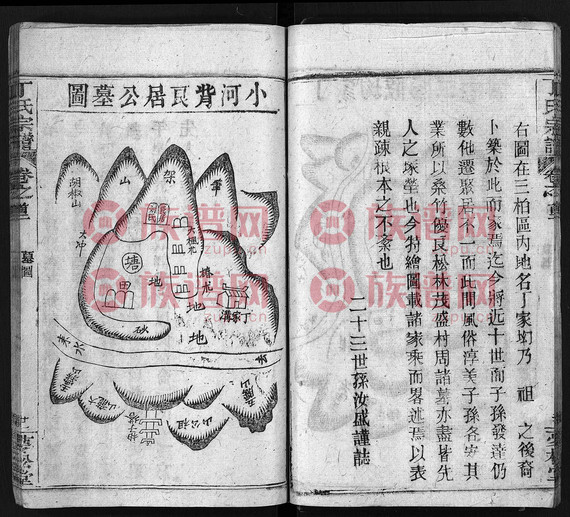 右圖在三柏區內地名丁家㘭乃　祖　之後裔
卜築於此而家焉迄今將近十世而子孫發達仍
數他遷聚居不一而此間風俗淳美子孫各安其
業所以桑竹優良松林茂盛村周諸墓亦盡皆先
人之塚塋也今特繪圖載諸家乘而畧述焉以表
親疎根本之不紊也
二十三世孫汝盛謹誌
小河背良居公墓圖
筆
架
山
胡椒山
大冲
塘
地
地
地
砂
丁家溝
來水
去
丁氏宗譜
卷之
墓圖
族谱网
zupu.cn